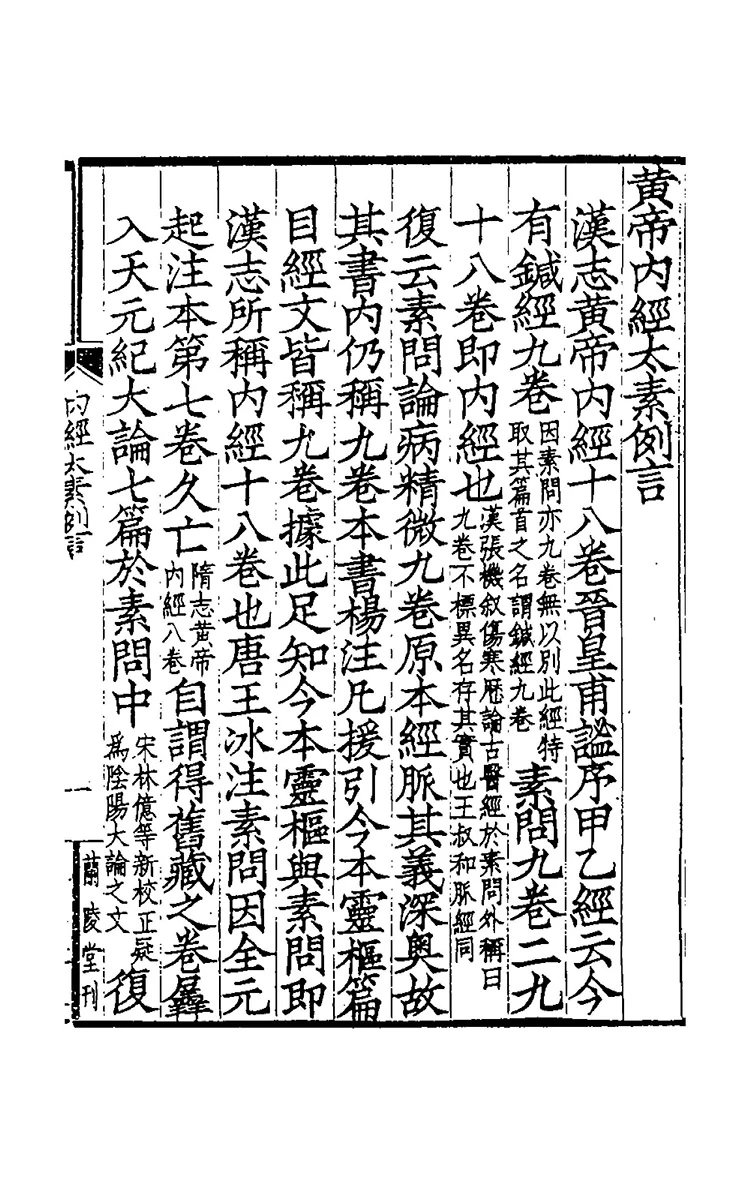 黃帝内經太素例言
漢志黃帝内經十八卷晉皇甫謐序甲乙經云今
有鍼經九卷因素問亦九卷無以别此經特取其篇首之名謂鍼經九卷素問九卷二九
十八卷即内經也漢張機叙傷寒歷論古醫經於素問外稱曰九卷不標異名存其實也王叔和脈經同
復云素問論病精微九卷原本經脈其義深奧故
其書内仍稱九卷本書楊注凡援引今本靈樞篇
目經文皆稱九卷據此足知今本靈樞與素問即
漢志所稱内經十八卷也唐王冰注素問因全元
起注本第七卷久亡隋志黃帝内經八卷自謂得舊藏之卷屬
入天元紀大論七篇於素問中宋林億等新校正疑為陰陽大論之文復
内經太素例言
一
蘭陵堂刊